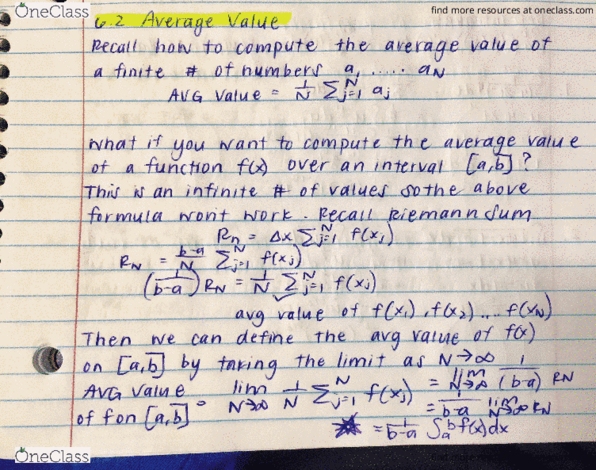 OneClass
find more resources at oneclass.com
6.2 Average Value
Recall how to compute the average value of
a finite # of numbers a₁ ..... aN
AVG Value = 1/N Σ^N_{j=1} aj
What if you want to compute the average value
of a function f(x) over an interval [a,b]?
This is an infinite # of values so the above
formula wont work. Recall Riemann Sum
Rn = Δx Σ^N_{j=1} f(xj)
RN = b-a/N Σ^N_{j=1} f(xj)
(1/b-a) RN = 1/N Σ^N_{j=1} f(xj)
avg value of f(x₁), f(x₂) ... f(xN)
Then we can define the avg value of f(x)
on [a,b] by taking the limit as N→∞
AVG Value of f on [a,b] = lim N→∞ 1/N Σ^N_{j=1} f(xj) = lim N→∞ 1/(b-a) RN
= 1/b-a lim N→∞ RN
* = 1/b-a ∫_a^b f(x)dx
OneClass